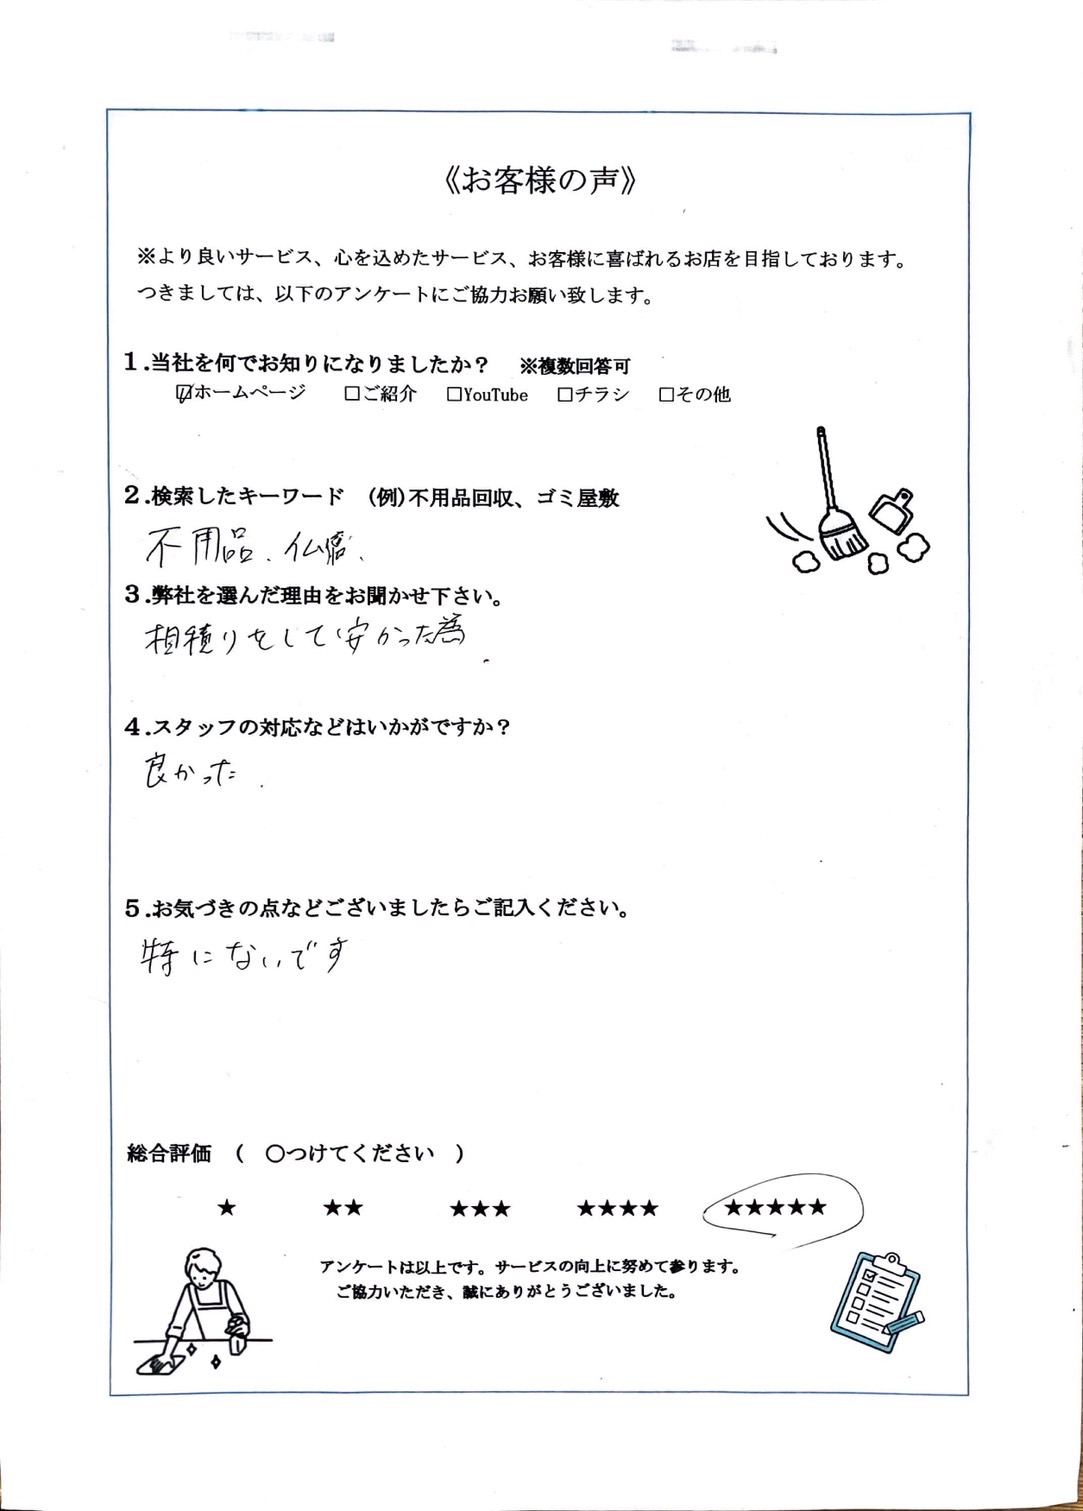 《お客様の声》
※より良いサービス、心を込めたサービス、お客様に喜ばれるお店を目指しております。
つきましては、以下のアンケートにご協力お願い致します。
１.当社を何でお知りになりましたか？　※複数回答可
☑ホームページ　□ご紹介　□YouTube　□チラシ　□その他
２.検索したキーワード　(例)不用品回収、ゴミ屋敷
不用品、仏壇、
３.弊社を選んだ理由をお聞かせ下さい。
相積りをして安かった為
４.スタッフの対応などはいかがですか？
良かった
５.お気づきの点などございましたらご記入ください。
特にないです
総合評価　(　〇つけてください　)
★　★★　★★★　★★★★　★★★★★
アンケートは以上です。サービスの向上に努めて参ります。
ご協力いただき、誠にありがとうございました。